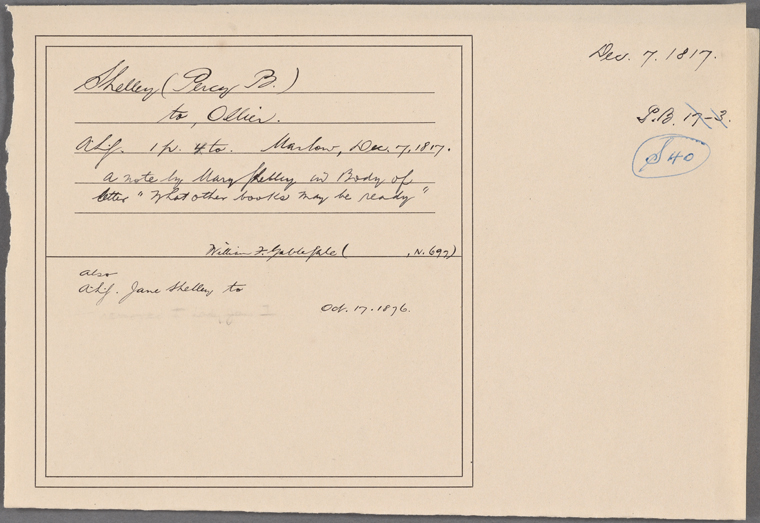 Dec. 7. 1817.
P.B. 17-3.
S 40
Shelley (Percy B.)
to, Ollier.
A.L.S. 1 p. 4to. Marlow, Dec. 7, 1817.
A note by Mary Shelley in Body of
letter "What other books may be ready"
William F. Gable Sale ( , N. 697)
also
A.L.S. Jane Shelley to
Oct. 17. 1876.